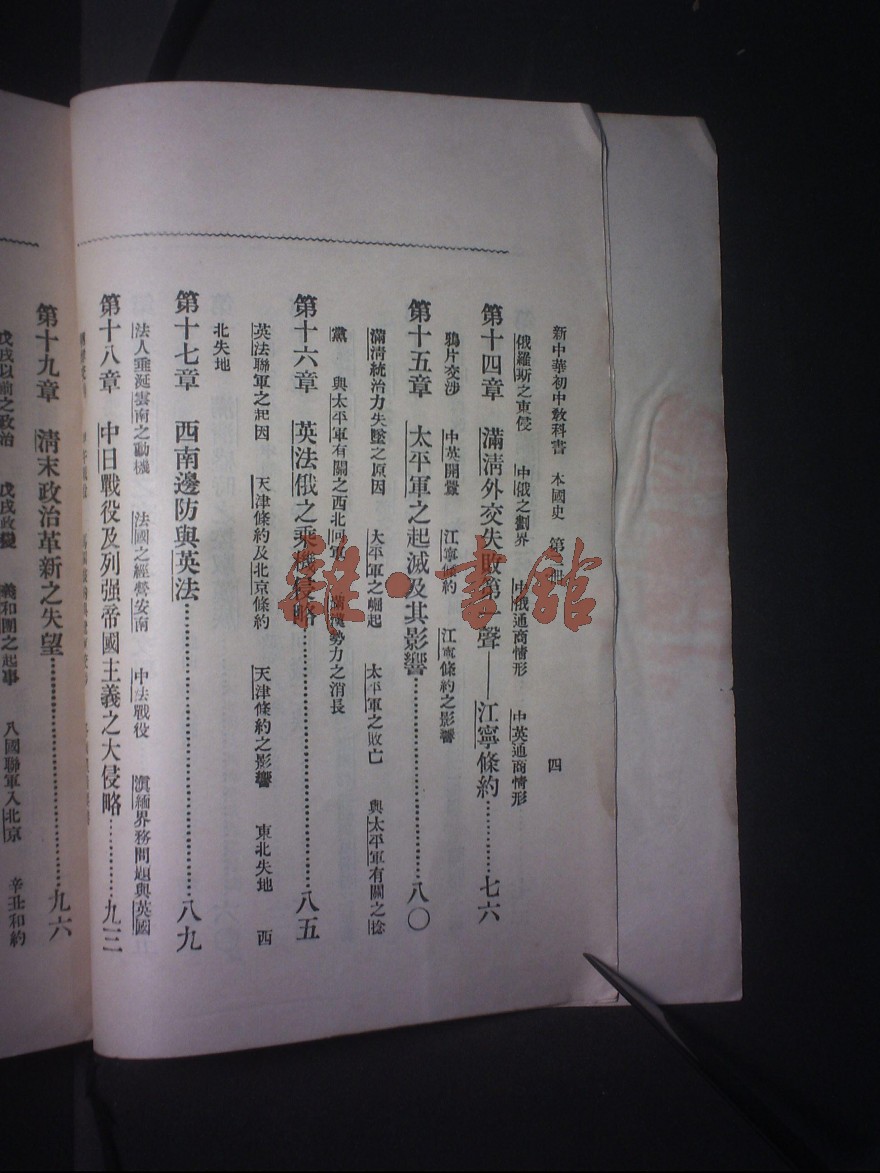 新中華初中敎科書 本國史 第 册 四
俄羅斯之東侵 中俄之劃界 中俄通商情形 中英通商情形
第十四章 滿淸外交失敗第一聲——江寧條約…………七六
鴉片交涉 中英開釁 江寧條約 江寧條約之影響
第十五章 太平軍之起滅及其影響…………八〇
滿淸統治力失墜之原因 太平軍之崛起 太平軍之敗亡 與太平軍有關之捻
黨 與太平軍有關之西北回軍 滿漢勢力之消長
第十六章 英法俄之乘機侵略…………八五
英法聯軍之起因 天津條約及北京條約 天津條約之影響 東北失地 西
北失地
第十七章 西南邊防與英法…………八九
法人垂涎雲南之動機 法國之經營安南 中法戰役 滇緬界務問題與英國
第十八章 中日戰役及列强帝國主義之大侵略…………九三
第十九章 淸末政治革新之失望…………九六
戊戌以前之政治 戊戌政變 義和團之起事 八國聯軍入北京 辛丑和約
雜·書館